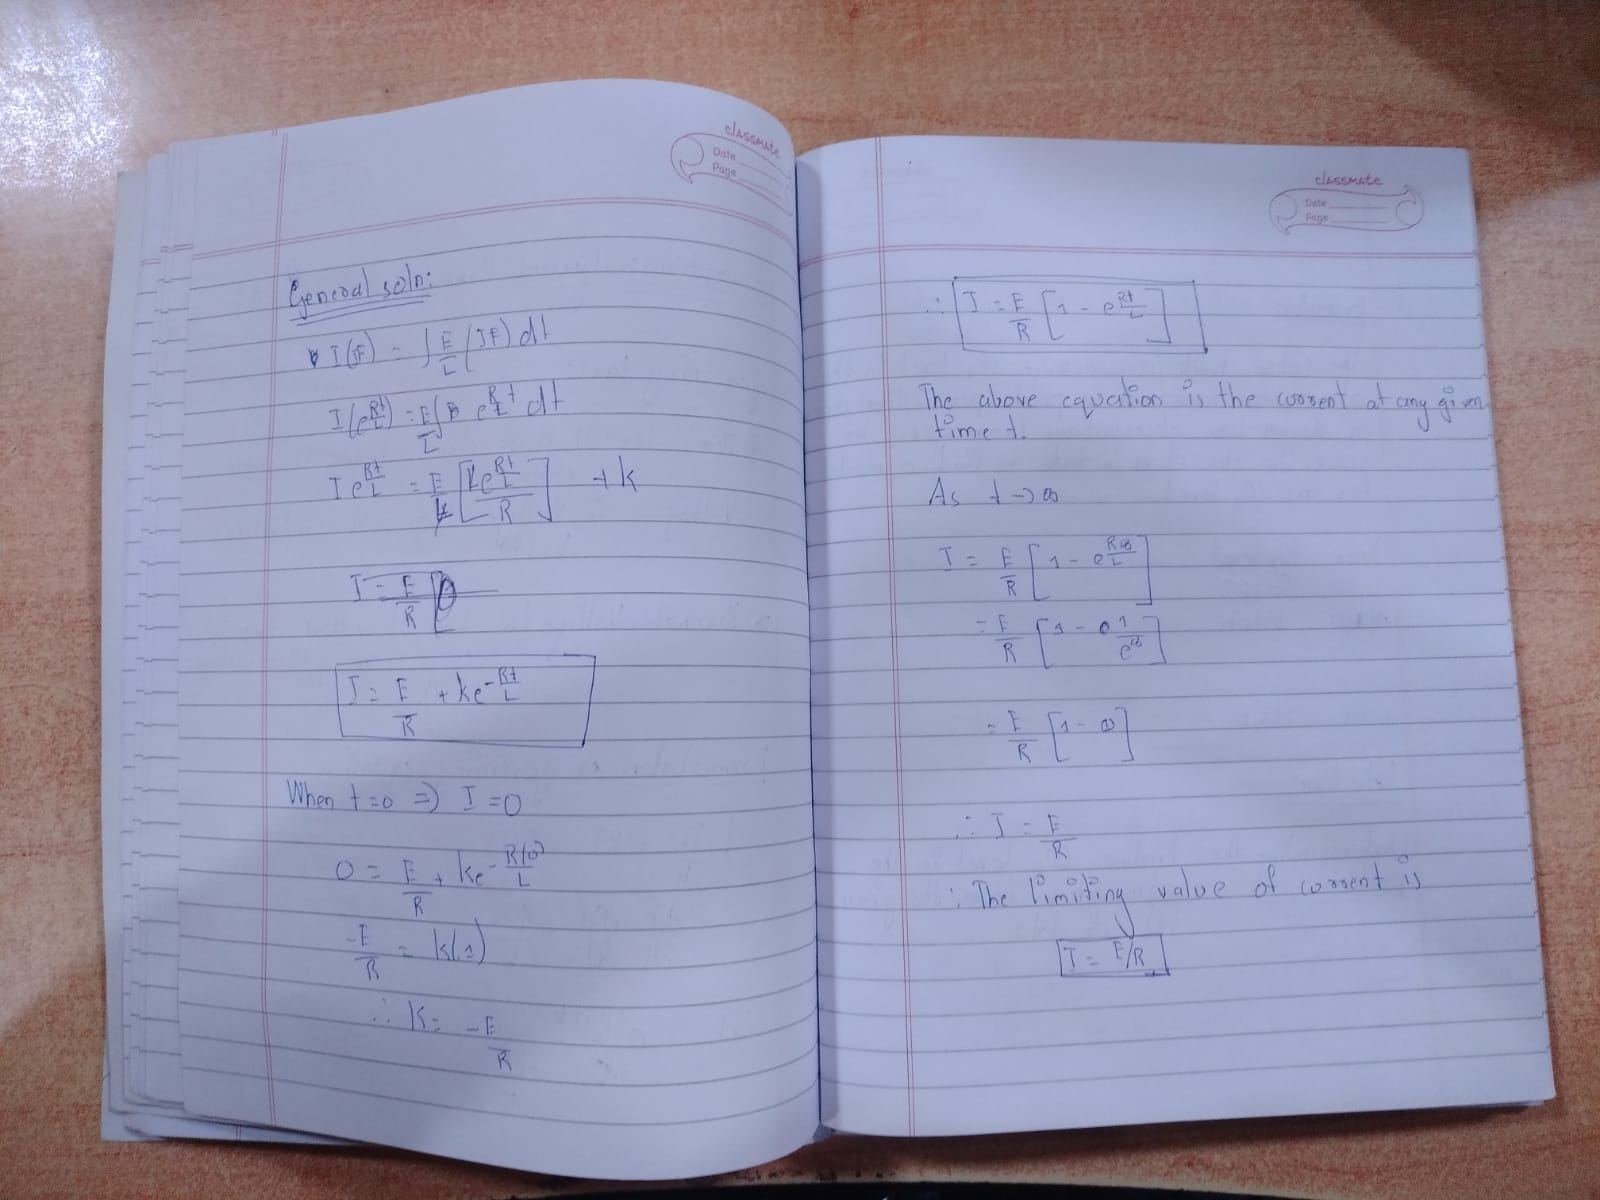 classmate
Date
Page
General soln:
I(IF) = ∫ E/L (IF) dt
I(e^Rt/L) = E/L ∫ e^R/L t dt
I e^Rt/L = E/L [L e^Rt/L / R] + k
I = E/R [
I = E/R + ke^-Rt/L
When t=0 => I =0
0 = E/R + ke^-R(0)/L
-E/R = k(1)
∴ K = -E/R
classmate
Date
Page
∴ I = E/R [1 - e^Rt/L]
The above equation is the current at any given
time t.
As t → ∞
I = E/R [1 - e^R∞/L]
= E/R [1 - 1/e^∞]
= E/R [1 - 0]
∴ I = E/R
∴ The limiting value of current is
I = E/R